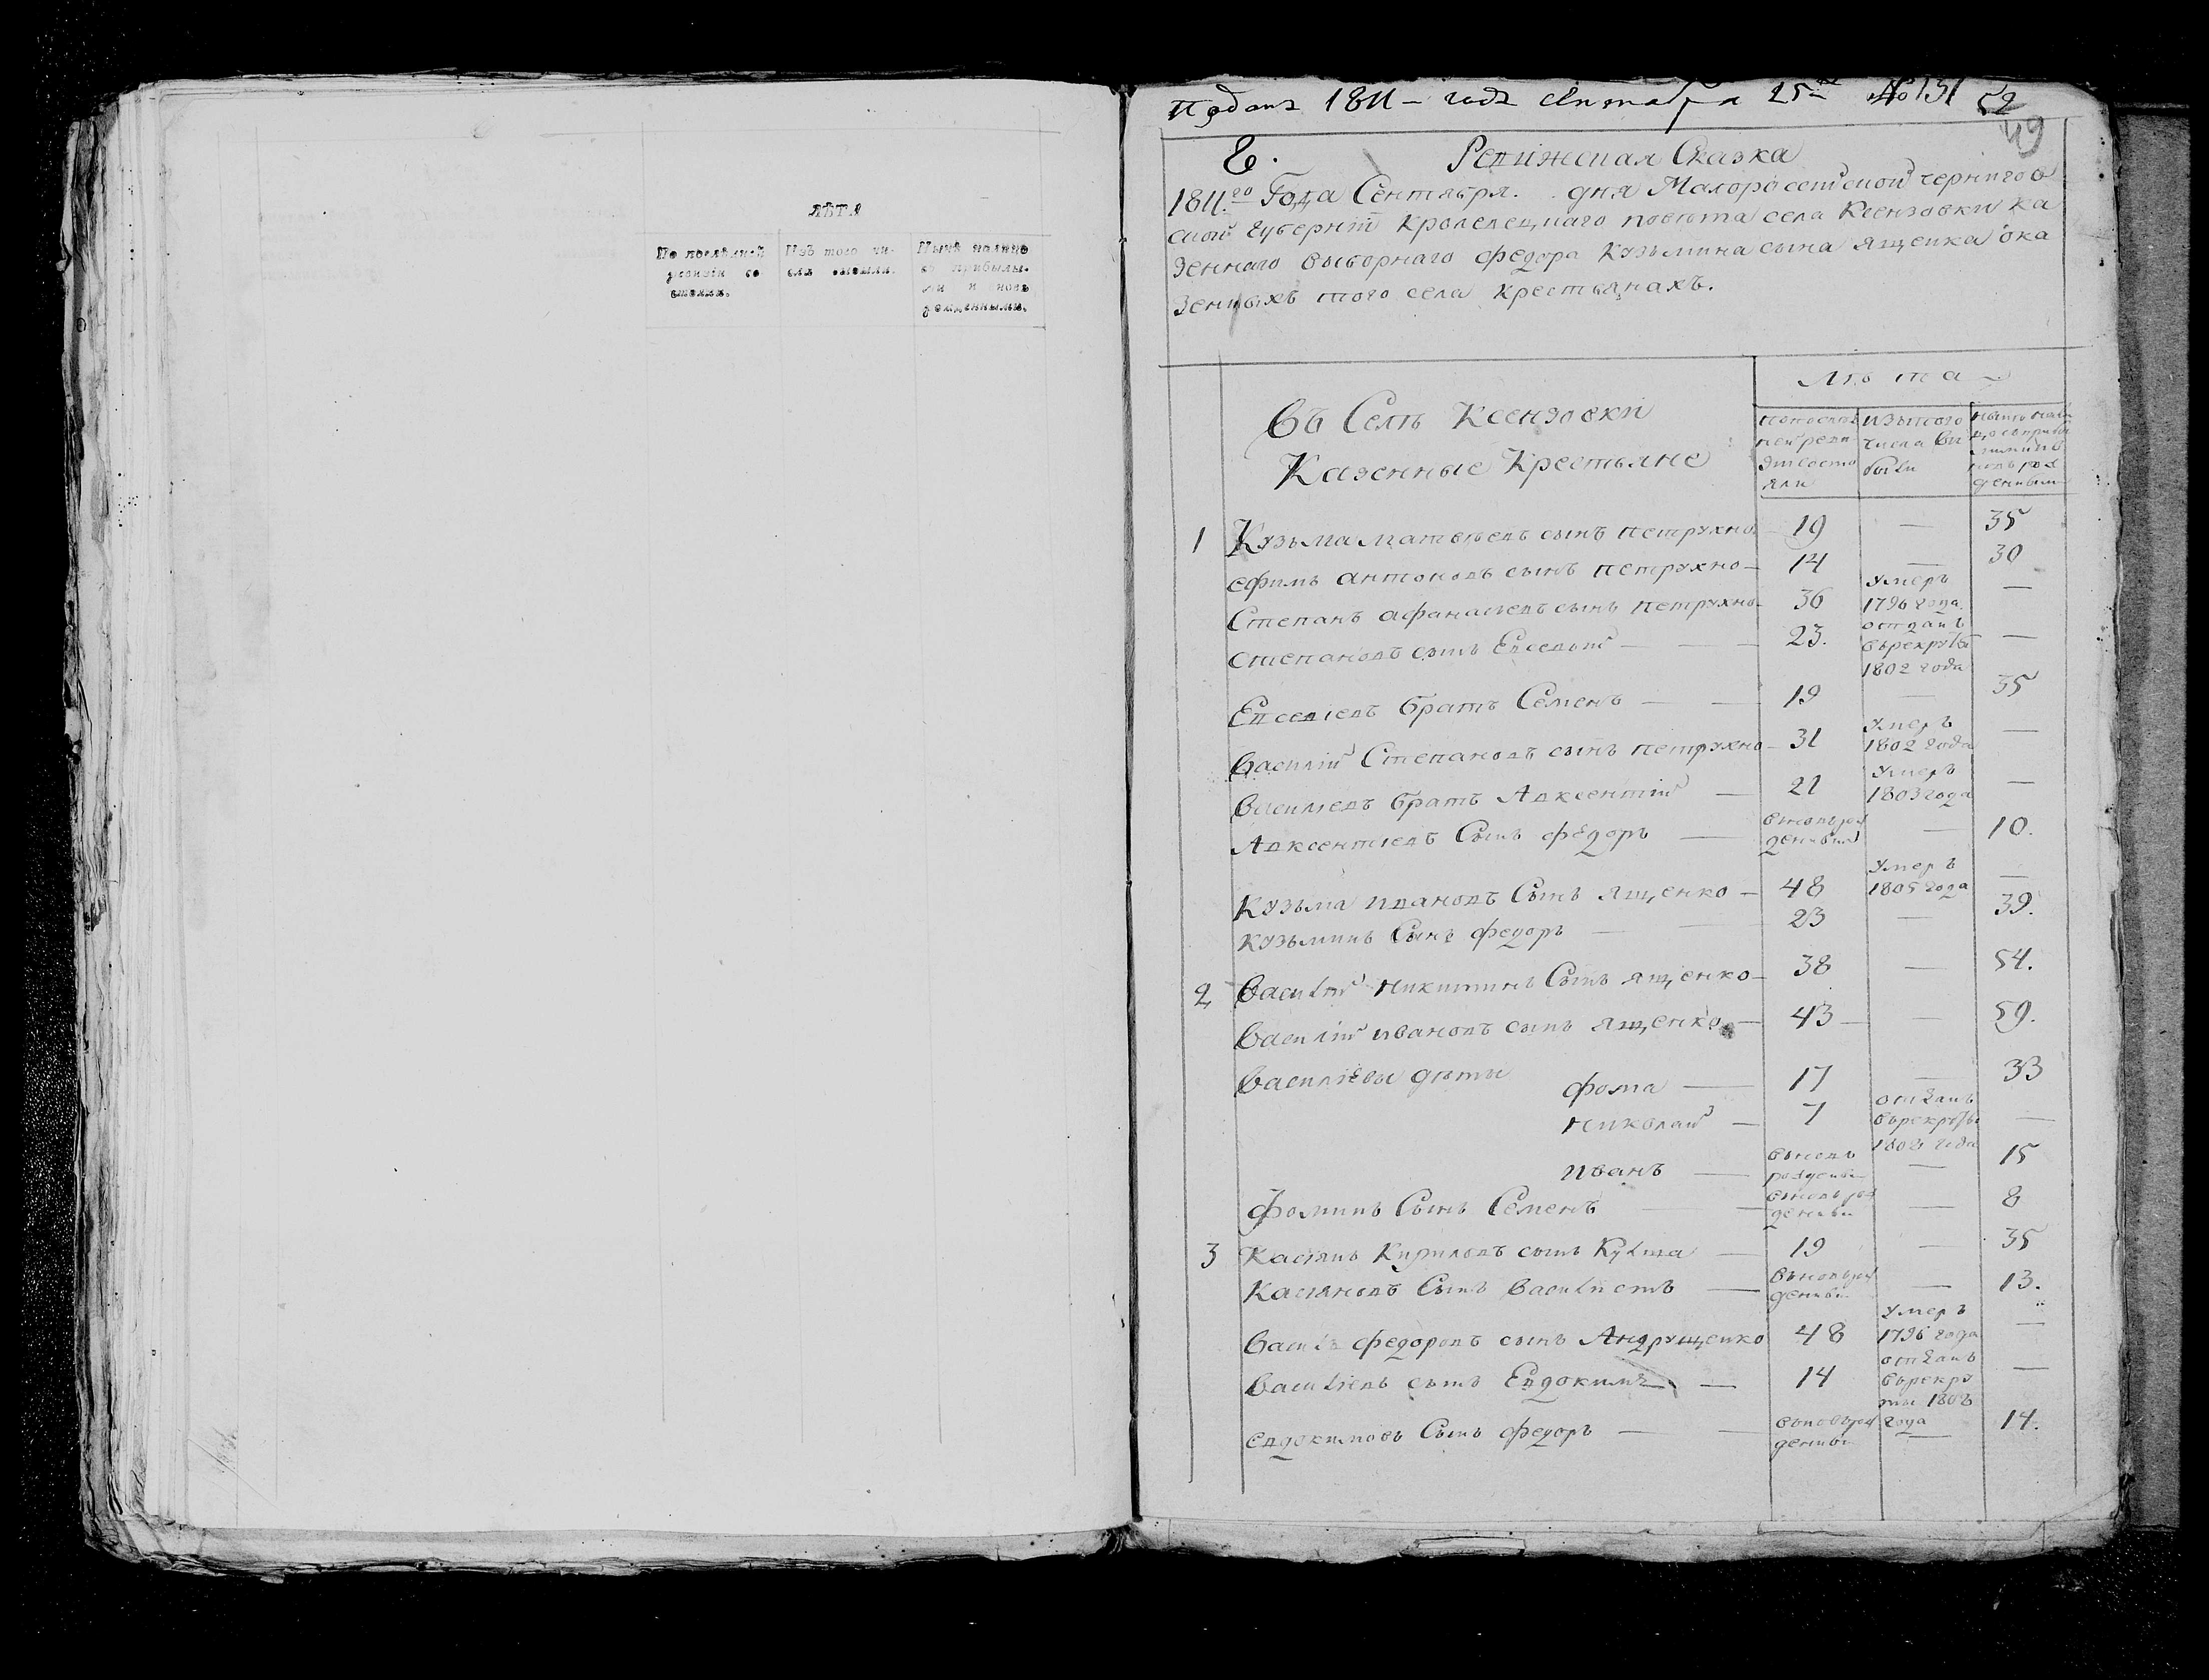 ЛѢТА
По послѣдней
ревизіи со
стояли.
Изъ того чи-
сла выбыли.
Нынѣ налицо
съ прибылы-
ми и новь
рожденными.
Подана 1811 – года Сентября 25 № 131 52
49
8. Ревижская Сказка
1811го Года Сентября . . дня Малоросейской чернигов
ской губерніи Кролевецкаго повѣта села Ксензовки ка
зеннаго выборнаго федора Кузьмина сына Ященка о ка
зенныхъ того села крестьянахъ.
Лѣта
Въ Селѣ Ксензовки
Казенные Крестьяне
по послѣд
ней реви
зіи состо
яли
изъ того
числа вы
были
1 Кузьма матвѣевъ сынъ петрухно 19 — 35
ефимъ антоновъ сынъ петрухно — 14 — 30
Степанъ афанасіевъ сынъ петрухно — 36 умеръ 1796 года —
степановъ сынъ Евсевій — 23. отданъ въ рекруты 1802 года —
Евсевіевъ братъ Семенъ — 19 — 35
Василій Степановъ сынъ петрухно — 31 умеръ 1802 года —
Василіевъ братъ Авксентій — 21 умеръ 1803 года —
Авксентіевъ Сынъ федоръ — вновь рож денный — 10.
Кузьма ивановъ Сынъ ященко — 48 умеръ 1805 года —
кузьминъ Сынъ федоръ — 23 — 39.
2 Василій никитинъ Сынъ ященко — 38 — 54.
Василій ивановъ сынъ ященко — 43 — 59.
Василіевы дѣти фома — 17 — 33
николай — 7 отданъ въ рекруты года —
иванъ — вновь — 15
фоминъ Сынъ Семенъ — вновь рож — 8
3 Касіянъ Кириловъ сынъ — 19 — 35
Касіяновъ Сынъ — вновь рож — 13.
федоровъ сынъ Андрущенко 48 умеръ 1796 года —
Василіевъ сынъ Евдокимъ — 14 отданъ въ рекру ты года —
евдокимовъ Сынъ федоръ — вновь рож — 14.